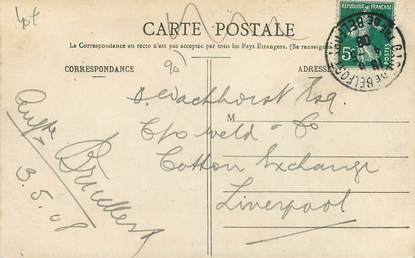 CARTE POSTALE
La Correspondance au recto n'est pas acceptée par tous les Pays Etrangers. (Se renseigner
CORRESPONDANCE
ADRESSE
REPUBLIQUE FRANÇAISE
5c
POSTES
BELFORT
90
M
Weld & Co
Cotton Exchange
Liverpool
3.5.08